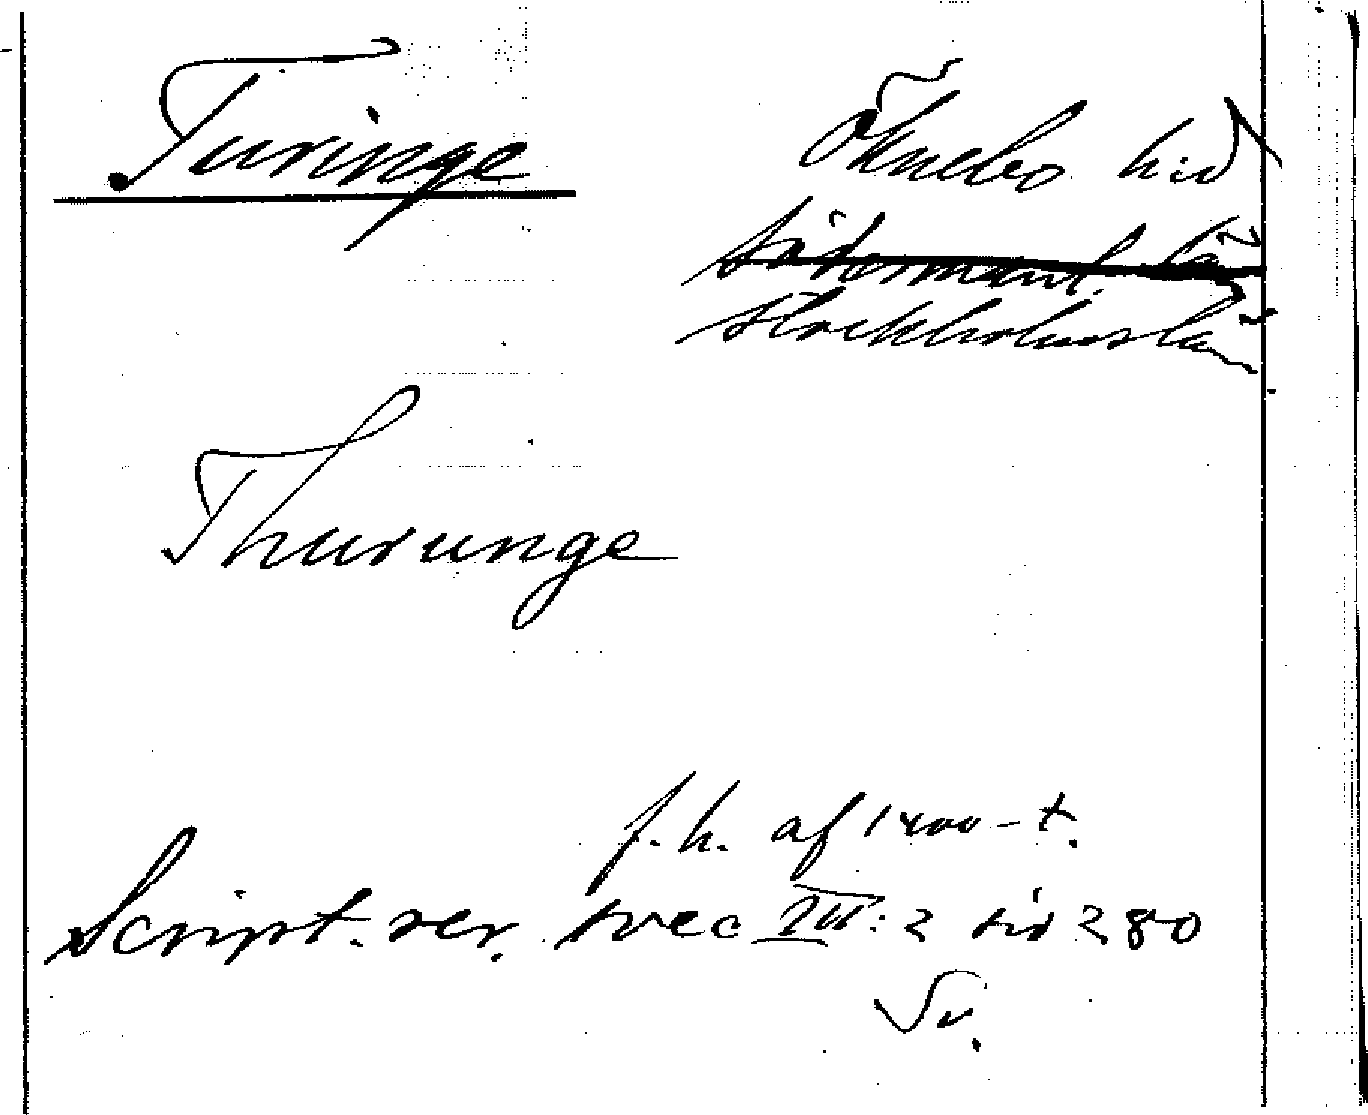 Turinge
Öknebo hd
Södermanl. län
Stockholms län
Thurunge
f.h. af 1400-t.
Script. rer. svec III: 2 sid 280
Sv.